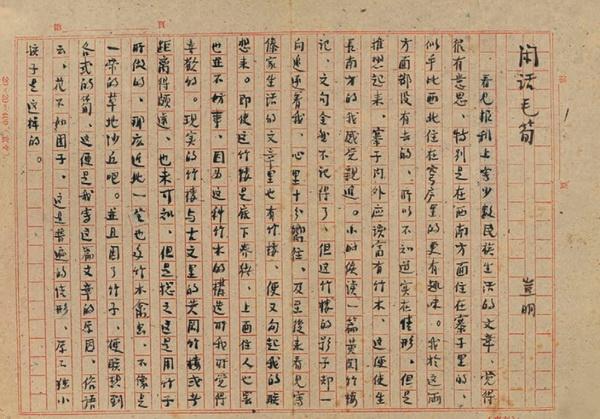 第 頁
闲话毛筍
豈明
看见报刊上有少数民族生活的文章，觉得
很有意思，特别是在西南方面住在寨子里的，
似乎比西北住在穹庐里的更有趣味。我於这两
方面都没有去的，所以不知道实在情形，但是
推想起来，寨子内外应该富有竹木，这便使生
长南方的我感觉親近。小时候读一篇黄冈竹楼
记，文句全都不记得了，但这竹楼的影子却一
向追逐着我，心里十分嚮往。及至後来看见写
傣家生活的文章里也有竹楼，便又勾起我的联
想来。即使这竹楼是底下养猪，上面住人也罢
也並不妨事，因为这种竹木的構造所我所觉得
喜欢的。现实的竹楼与古文里的黄冈竹楼或者
距離得颇遠，也未可知，但是想来这是用竹子
所做的，那应近北一定也多竹木禽鸟，不像是
一带的草地沙丘吧。並且因了竹子，便联想到
各式的筍，这便是我写这篇文章的原因。俗语
云，花不如团子，这是普遍的情形，原不独小
孩子是这样的。